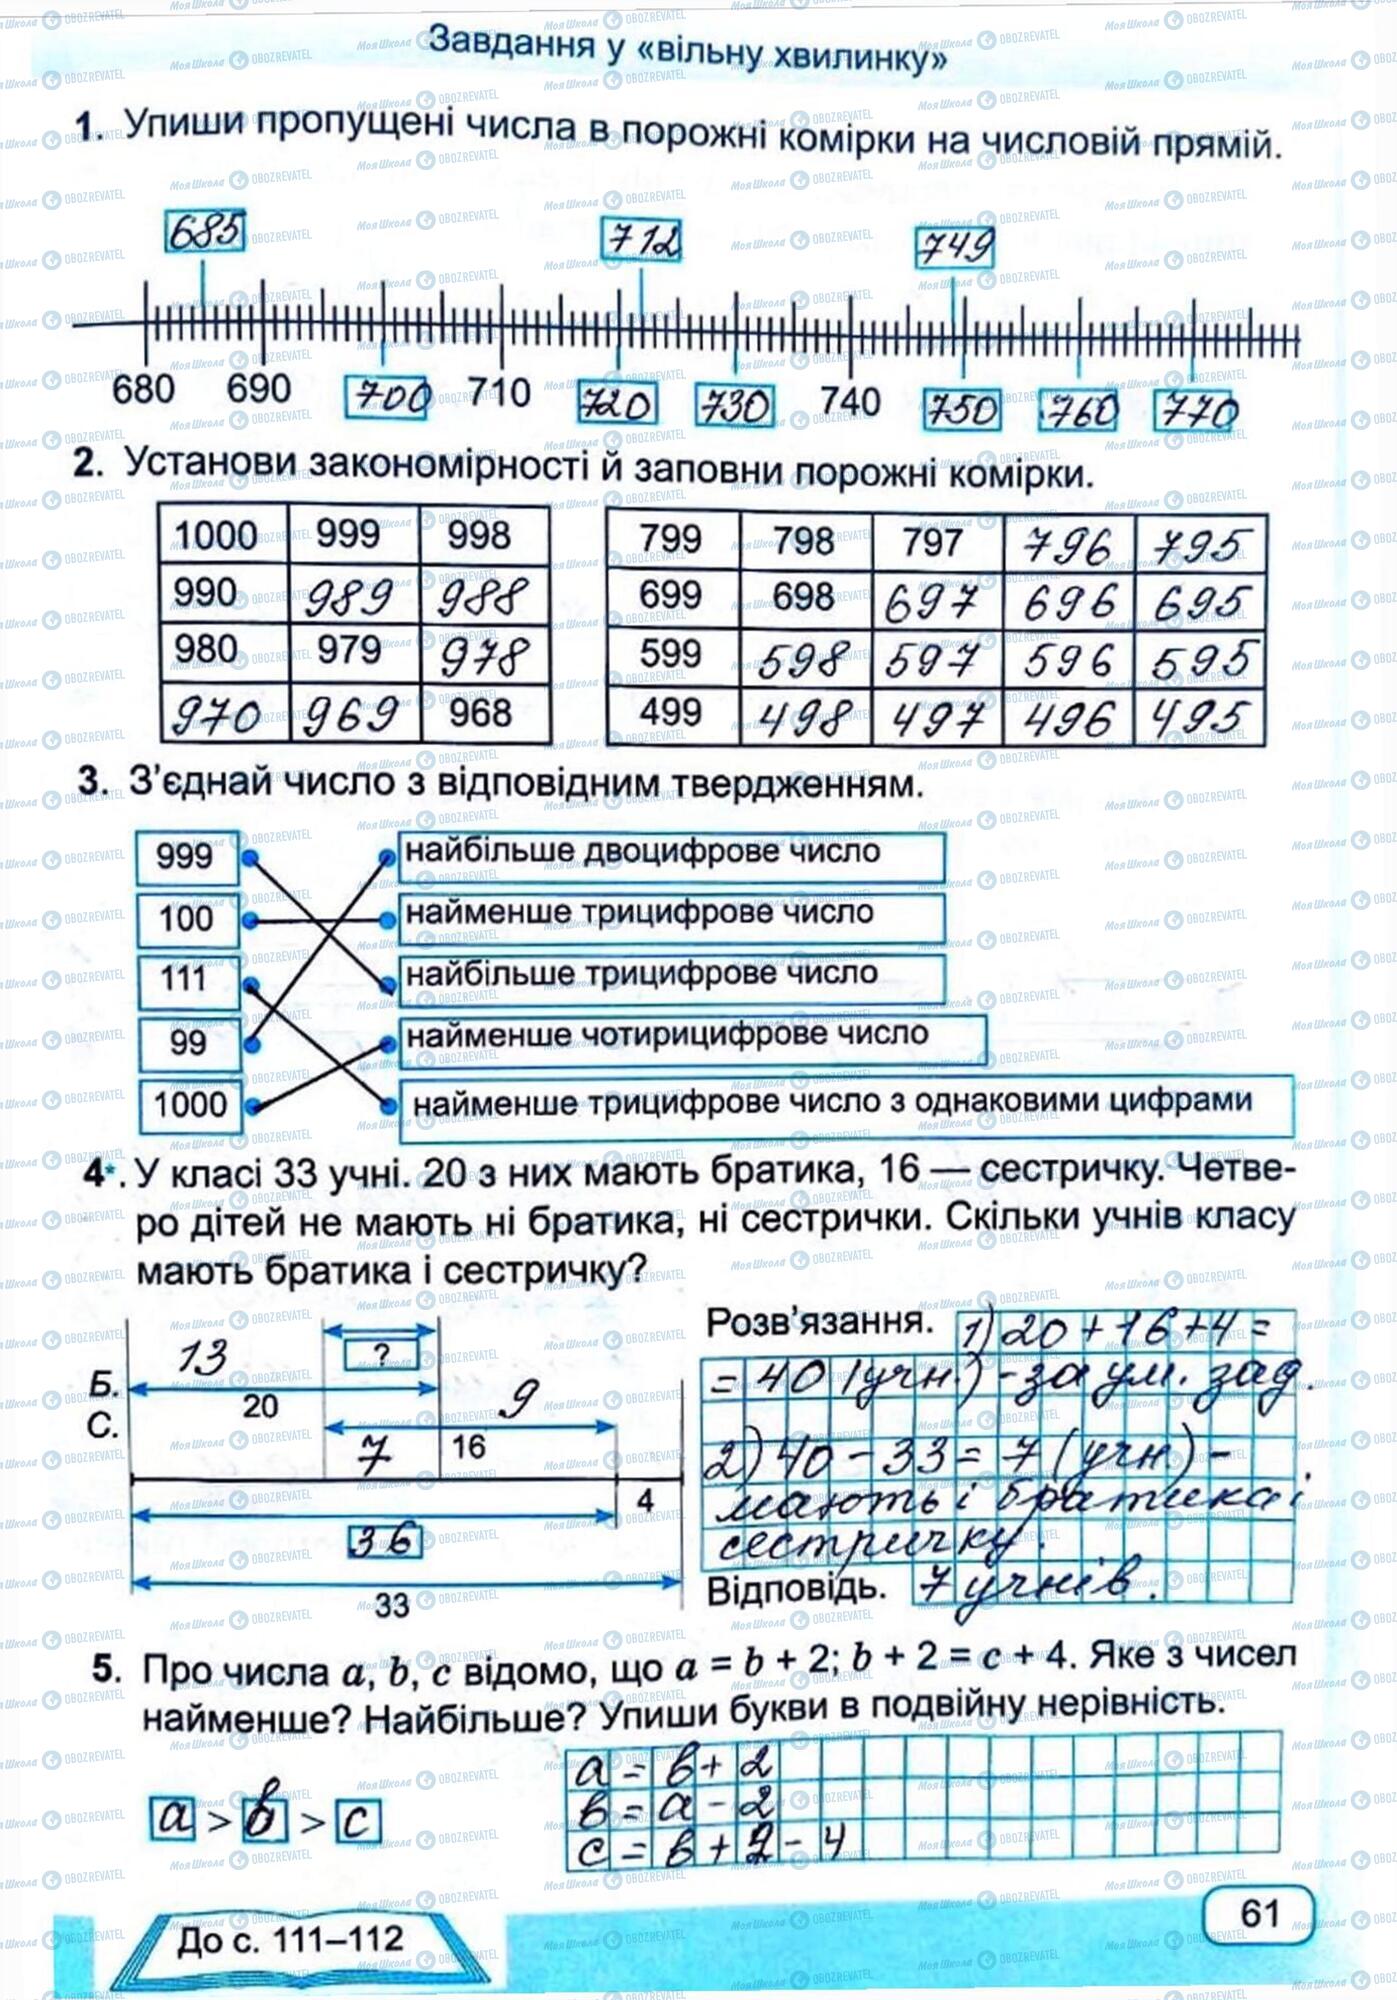 Завдання у «вільну хвилинку»
1. Упиши пропущені числа в порожні комірки на числовій прямій.
685 712 749
680 690 700 710 720 730 740 750 760 770
2. Установи закономірності й заповни порожні комірки.
1000 999 998 799 798 797 796 795
990 989 988 699 698 697 696 695
980 979 978 599 598 597 596 595
970 969 968 499 498 497 496 495
3. З'єднай число з відповідним твердженням.
999 найбільше двоцифрове число
100 найменше трицифрове число
111 найбільше трицифрове число
99 найменше чотирицифрове число
1000 найменше трицифрове число з однаковими цифрами
4*. У класі 33 учні. 20 з них мають братика, 16 — сестричку. Четве-
ро дітей не мають ні братика, ні сестрички. Скільки учнів класу
мають братика і сестричку?
13 ?
Б. 20 9
С. 7 16
4
36
33
Розв'язання. 1) 20 + 16 + 4 =
= 40 (учн.) - за ум. зад.
2) 40 - 33 = 7 (учн) -
мають і братика і
сестричку.
Відповідь. 7 учнів.
5. Про числа a, b, c відомо, що a = b + 2; b + 2 = c + 4. Яке з чисел
найменше? Найбільше? Упиши букви в подвійну нерівність.
a > b > c
a = b + 2
b = a - 2
c = b + 2 - 4
До с. 111–112
61
МояШкола OBOZREVATEL